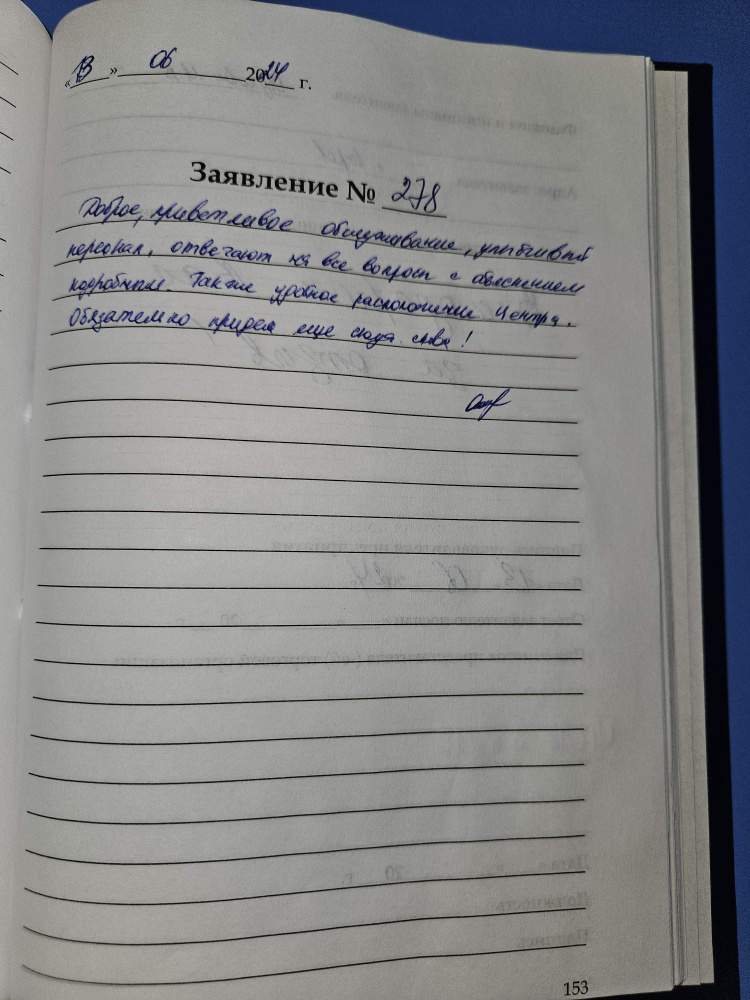 «13» 06 2024 г.
Заявление № 278
Доброе, приветливое обслуживание, учтивый
персонал, отвечают на все вопросы с объяснением
подробным. Также удобное расположение Центра.
Обязательно придем еще сюда снова!
153